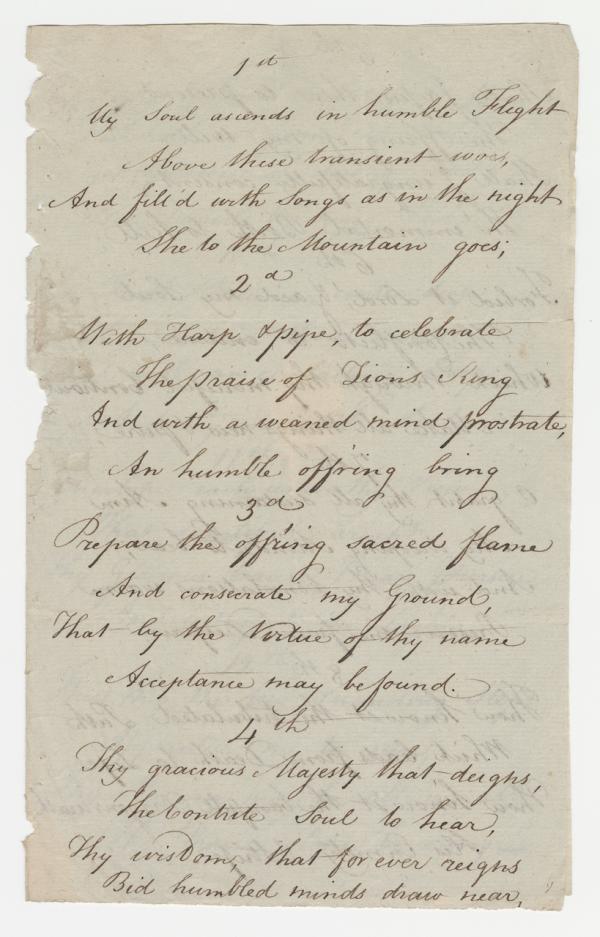 1st
My Soul ascends in humble Flight
Above these transient woes,
And fill'd with Songs as in the night
She to the Mountain goes;
2d
With Harp & pipe, to celebrate
The praise of Zion's King
And with a weaned mind prostrate,
An humble off'ring bring
3d
Prepare the off'ring sacred flame
And consecrate my Ground,
That by the Virtue of thy name
Acceptance may be found.
4th
Thy gracious Majesty that deighs,
The Contrite Soul to hear,
Thy wisdom, that for ever reighs
Bid humbled minds draw near,